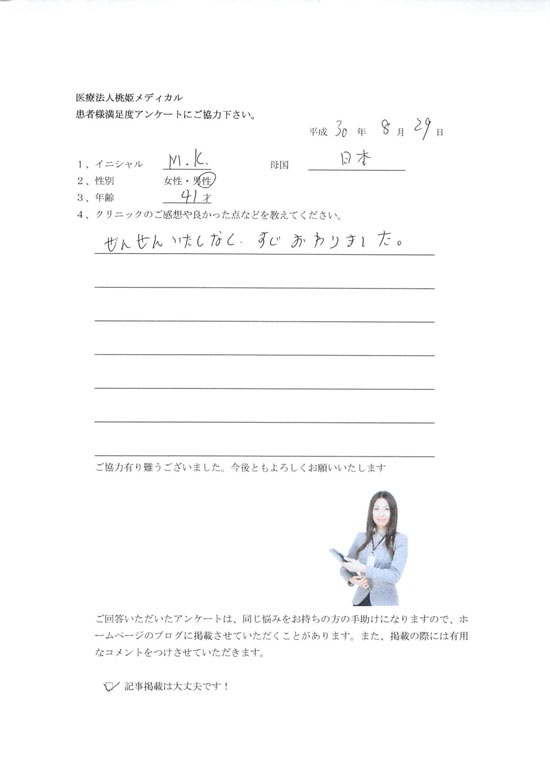 医療法人桃姫メディカル
患者様満足度アンケートにご協力下さい。
平成 30 年 8 月 29 日
1、イニシャル M.K. 母国 日本
2、性別 女性・男性
3、年齢 41才
4、クリニックのご感想や良かった点などを教えてください。
ぜんぜんいたくなく、すぐおわりました。
ご協力有り難うございました。今後ともよろしくお願いいたします
ご回答いただいたアンケートは、同じ悩みをお持ちの方の手助けになりますので、ホ
ームページのブログに掲載させていただくことがあります。また、掲載の際には有用
なコメントをつけさせていただきます。
記事掲載は大丈夫です！